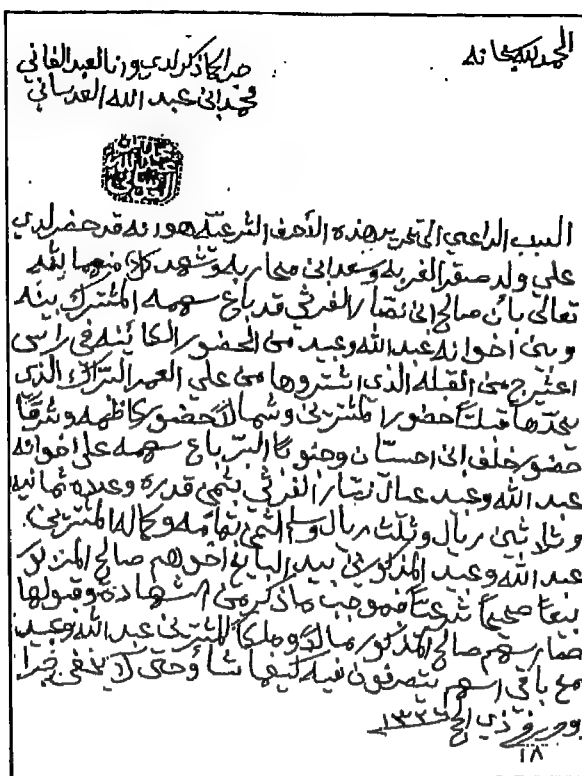 الحمد لله سبحانه
جرا لما ذكر لدي وانا العبد الفاني
محمد ابن عبد الله العدساني
السبب الداعي الى تحرير هذه الأحرف الشرعيّه هو انه قد حضر لدي
علي ولد صقر الغربه وسعد ابن محاربه وشهد كلا منهما لله
تعالى بأن صالح ابن نصّار الفرثي قد باع سهمه المشترك بينه
وبين اخوانه عبد الله وعبيد من الحضور الكائنه في راس
من القبله الذي اشتروها من علي العمر الذي
يحدّها قبلتاً حضور المشترين وشمالاً حضور كاظمه وشرقاً
حضور خلف ابن وجنوباً البر باع سهمه على اخوانه
عبد الله وعبيد عيال نصّار الفرثي بثمن قدره وعدده ثمانيه
وثلاثين ريال وثلث ريال الثمن بتمامه وكماله المشترين
عبد الله وعبيد المذكورين بيد البايع اخوهم صالح المذكور
بيعاً صحيحاً شرعيّاً فبموجب ما ذكر من الشهادة وقبولها
صار سهم صالح المذكور مالاً وملكاً للمشترين عبد الله وعبيد
مع باقي اسهم يتصرفون فيه كيفما شاأو حتى لا يخفى جرا
وحرر في ذي الحج ١٣٣٦
١٨